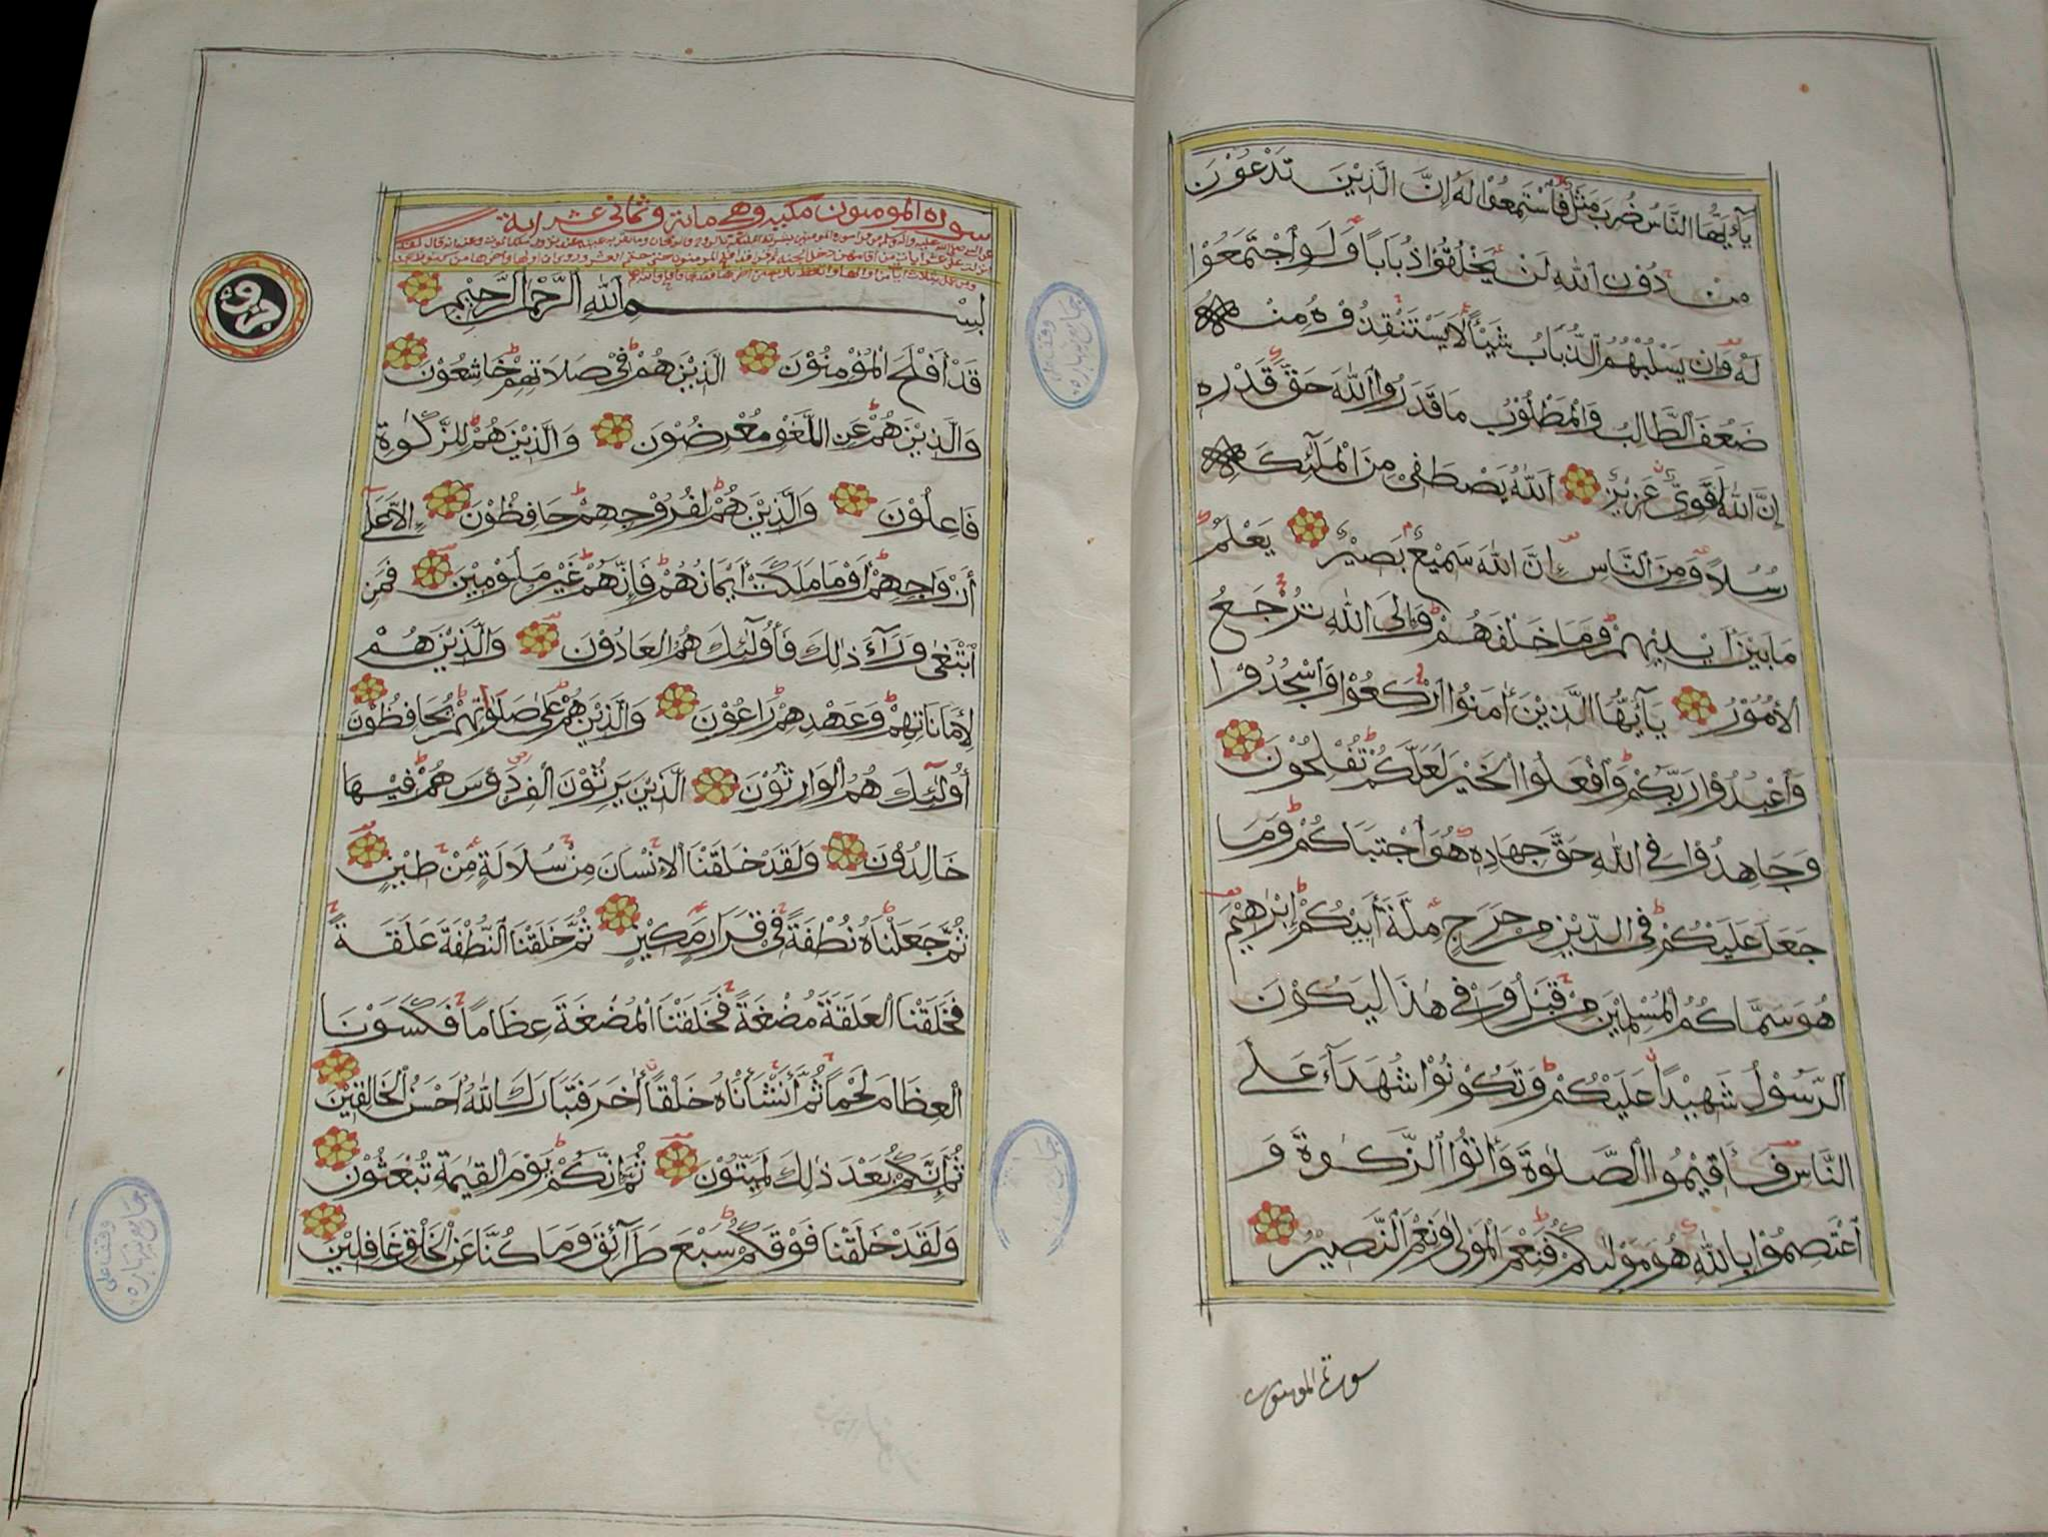 يَآءَيُّهَا النَّاسُ ضُرِبَ مَثَلٌ فَٱسْتَمِعُوْا لَهُ إِنَّ الَّذِيْنَ تَدْعُوْنَ
مِنْ دُوْنِ ٱللّٰهِ لَنْ يَخْلُقُوْا ذُبَابًا وَلَوِ ٱجْتَمَعُوْا
لَهُ وَإِن يَسْلُبْهُمُ ٱلذُّبَابُ شَيْئًا لَا يَسْتَنْقِذُوْهُ مِنْهُ
ضَعُفَ ٱلطَّالِبُ وَٱلْمَطْلُوْبُ مَا قَدَرُوا ٱللّٰهَ حَقَّ قَدْرِهِ
إِنَّ ٱللّٰهَ لَقَوِيٌّ عَزِيْزٌ ٱللّٰهُ يَصْطَفِيْ مِنَ ٱلْمَلَٓئِكَةِ
رُسُلًا وَمِنَ ٱلنَّاسِ إِنَّ ٱللّٰهَ سَمِيْعٌ بَصِيْرٌ يَعْلَمُ
مَا بَيْنَ أَيْدِيْهِمْ وَمَا خَلْفَهُمْ وَإِلَى ٱللّٰهِ تُرْجَعُ
ٱلْأُمُوْرُ يَآأَيُّهَا ٱلَّذِيْنَ ءَامَنُوا ٱرْكَعُوْا وَٱسْجُدُوْا
وَٱعْبُدُوْا رَبَّكُمْ وَٱفْعَلُوا ٱلْخَيْرَ لَعَلَّكُمْ تُفْلِحُوْنَ
وَجَاهِدُوْا فِي ٱللّٰهِ حَقَّ جِهَادِهِ هُوَ ٱجْتَبَاكُمْ وَمَا
جَعَلَ عَلَيْكُمْ فِي ٱلدِّيْنِ مِنْ حَرَجٍ مِلَّةَ أَبِيْكُمْ إِبْرٰهِيْمَ
هُوَ سَمَّاكُمُ ٱلْمُسْلِمِيْنَ مِنْ قَبْلُ وَفِيْ هٰذَا لِيَكُوْنَ
ٱلرَّسُوْلُ شَهِيْدًا عَلَيْكُمْ وَتَكُوْنُوْا شُهَدَآءَ عَلَى
ٱلنَّاسِ فَأَقِيْمُوا ٱلصَّلٰوةَ وَءَاتُوا ٱلزَّكٰوةَ وَ
ٱعْتَصِمُوْا بِاللّٰهِ هُوَ مَوْلٰىكُمْ فَنِعْمَ ٱلْمَوْلٰى وَنِعْمَ ٱلنَّصِيْرُ
سورة المومنون
سورة المومنون مكية وهي مائة وثماني عشر اية
بِسْمِ ٱللّٰهِ ٱلرَّحْمٰنِ ٱلرَّحِيْمِ
قَدْ أَفْلَحَ ٱلْمُؤْمِنُوْنَ ٱلَّذِيْنَ هُمْ فِيْ صَلَاتِهِمْ خَاشِعُوْنَ
وَٱلَّذِيْنَ هُمْ عَنِ ٱللَّغْوِ مُعْرِضُوْنَ وَٱلَّذِيْنَ هُمْ لِلزَّكٰوةِ
فَاعِلُوْنَ وَٱلَّذِيْنَ هُمْ لِفُرُوْجِهِمْ حَافِظُوْنَ إِلَّا عَلَى
أَزْوَاجِهِمْ أَوْ مَا مَلَكَتْ أَيْمَانُهُمْ فَإِنَّهُمْ غَيْرُ مَلُوْمِيْنَ فَمَنِ
ٱبْتَغٰى وَرَآءَ ذٰلِكَ فَأُولَٓئِكَ هُمُ ٱلْعَادُوْنَ وَٱلَّذِيْنَ هُمْ
لِأَمَانَاتِهِمْ وَعَهْدِهِمْ رَاعُوْنَ وَٱلَّذِيْنَ هُمْ عَلٰى صَلَوٰتِهِمْ يُحَافِظُوْنَ
أُولٰٓئِكَ هُمُ ٱلْوَارِثُوْنَ ٱلَّذِيْنَ يَرِثُوْنَ ٱلْفِرْدَوْسَ هُمْ فِيْهَا
خَالِدُوْنَ وَلَقَدْ خَلَقْنَا ٱلْإِنْسَانَ مِنْ سُلَالَةٍ مِنْ طِيْنٍ
ثُمَّ جَعَلْنَاهُ نُطْفَةً فِيْ قَرَارٍ مَكِيْنٍ ثُمَّ خَلَقْنَا ٱلنُّطْفَةَ عَلَقَةً
فَخَلَقْنَا ٱلْعَلَقَةَ مُضْغَةً فَخَلَقْنَا ٱلْمُضْغَةَ عِظَامًا فَكَسَوْنَا
ٱلْعِظَامَ لَحْمًا ثُمَّ أَنْشَأْنَاهُ خَلْقًا ءَاخَرَ فَتَبَارَكَ ٱللّٰهُ أَحْسَنُ ٱلْخَالِقِيْنَ
ثُمَّ إِنَّكُمْ بَعْدَ ذٰلِكَ لَمَيِّتُوْنَ ثُمَّ إِنَّكُمْ يَوْمَ ٱلْقِيٰمَةِ تُبْعَثُوْنَ
وَلَقَدْ خَلَقْنَا فَوْقَكُمْ سَبْعَ طَرَآئِقَ وَمَا كُنَّا عَنِ ٱلْخَلْقِ غَافِلِيْنَ
جزو
وقف على